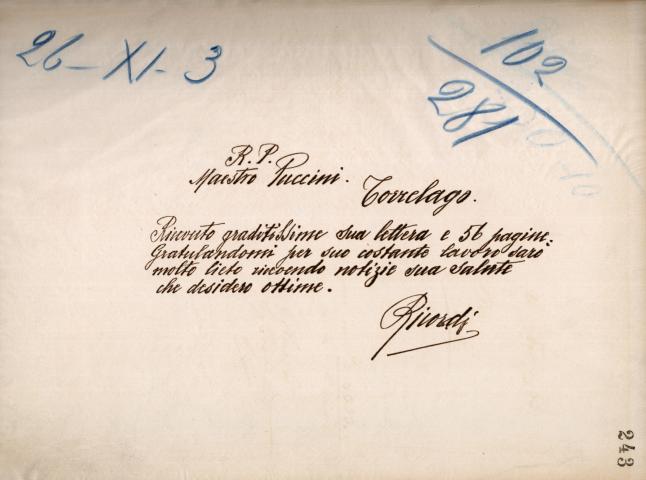 26-XI-3
102
281
R. P.
Maestro Puccini.
Torrelago.
Ricevuto graditissime sua lettera e 56 pagine.
Gratulandomi per suo costante lavoro sarò
molto lieto ricevendo notizie sua salute
che desidero ottime.
Ricordi
243